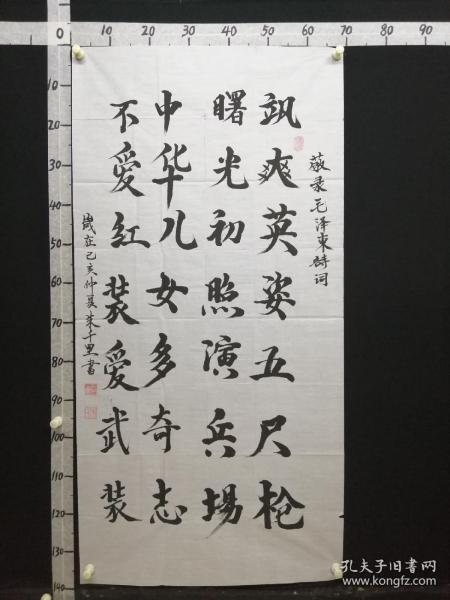 敬录毛泽東詩词
飒爽英姿五尺枪
曙光初照演兵場
中华儿女多奇志
不爱红装爱武装
歲在己亥仲夏朱千里書
0 10 20 30 40 50 60 70 80 90
10
20
30
40
50
60
70
80
90
100
110
120
130
140
孔夫子旧书网
www.kongfz.com